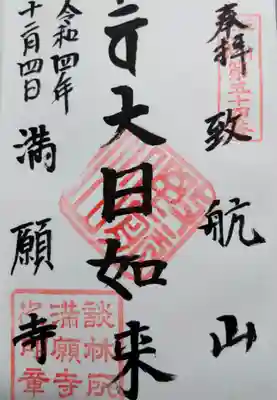 奉拝
致航山
大日如来
満願寺
令和四年
十二月四日
談林院
満願寺